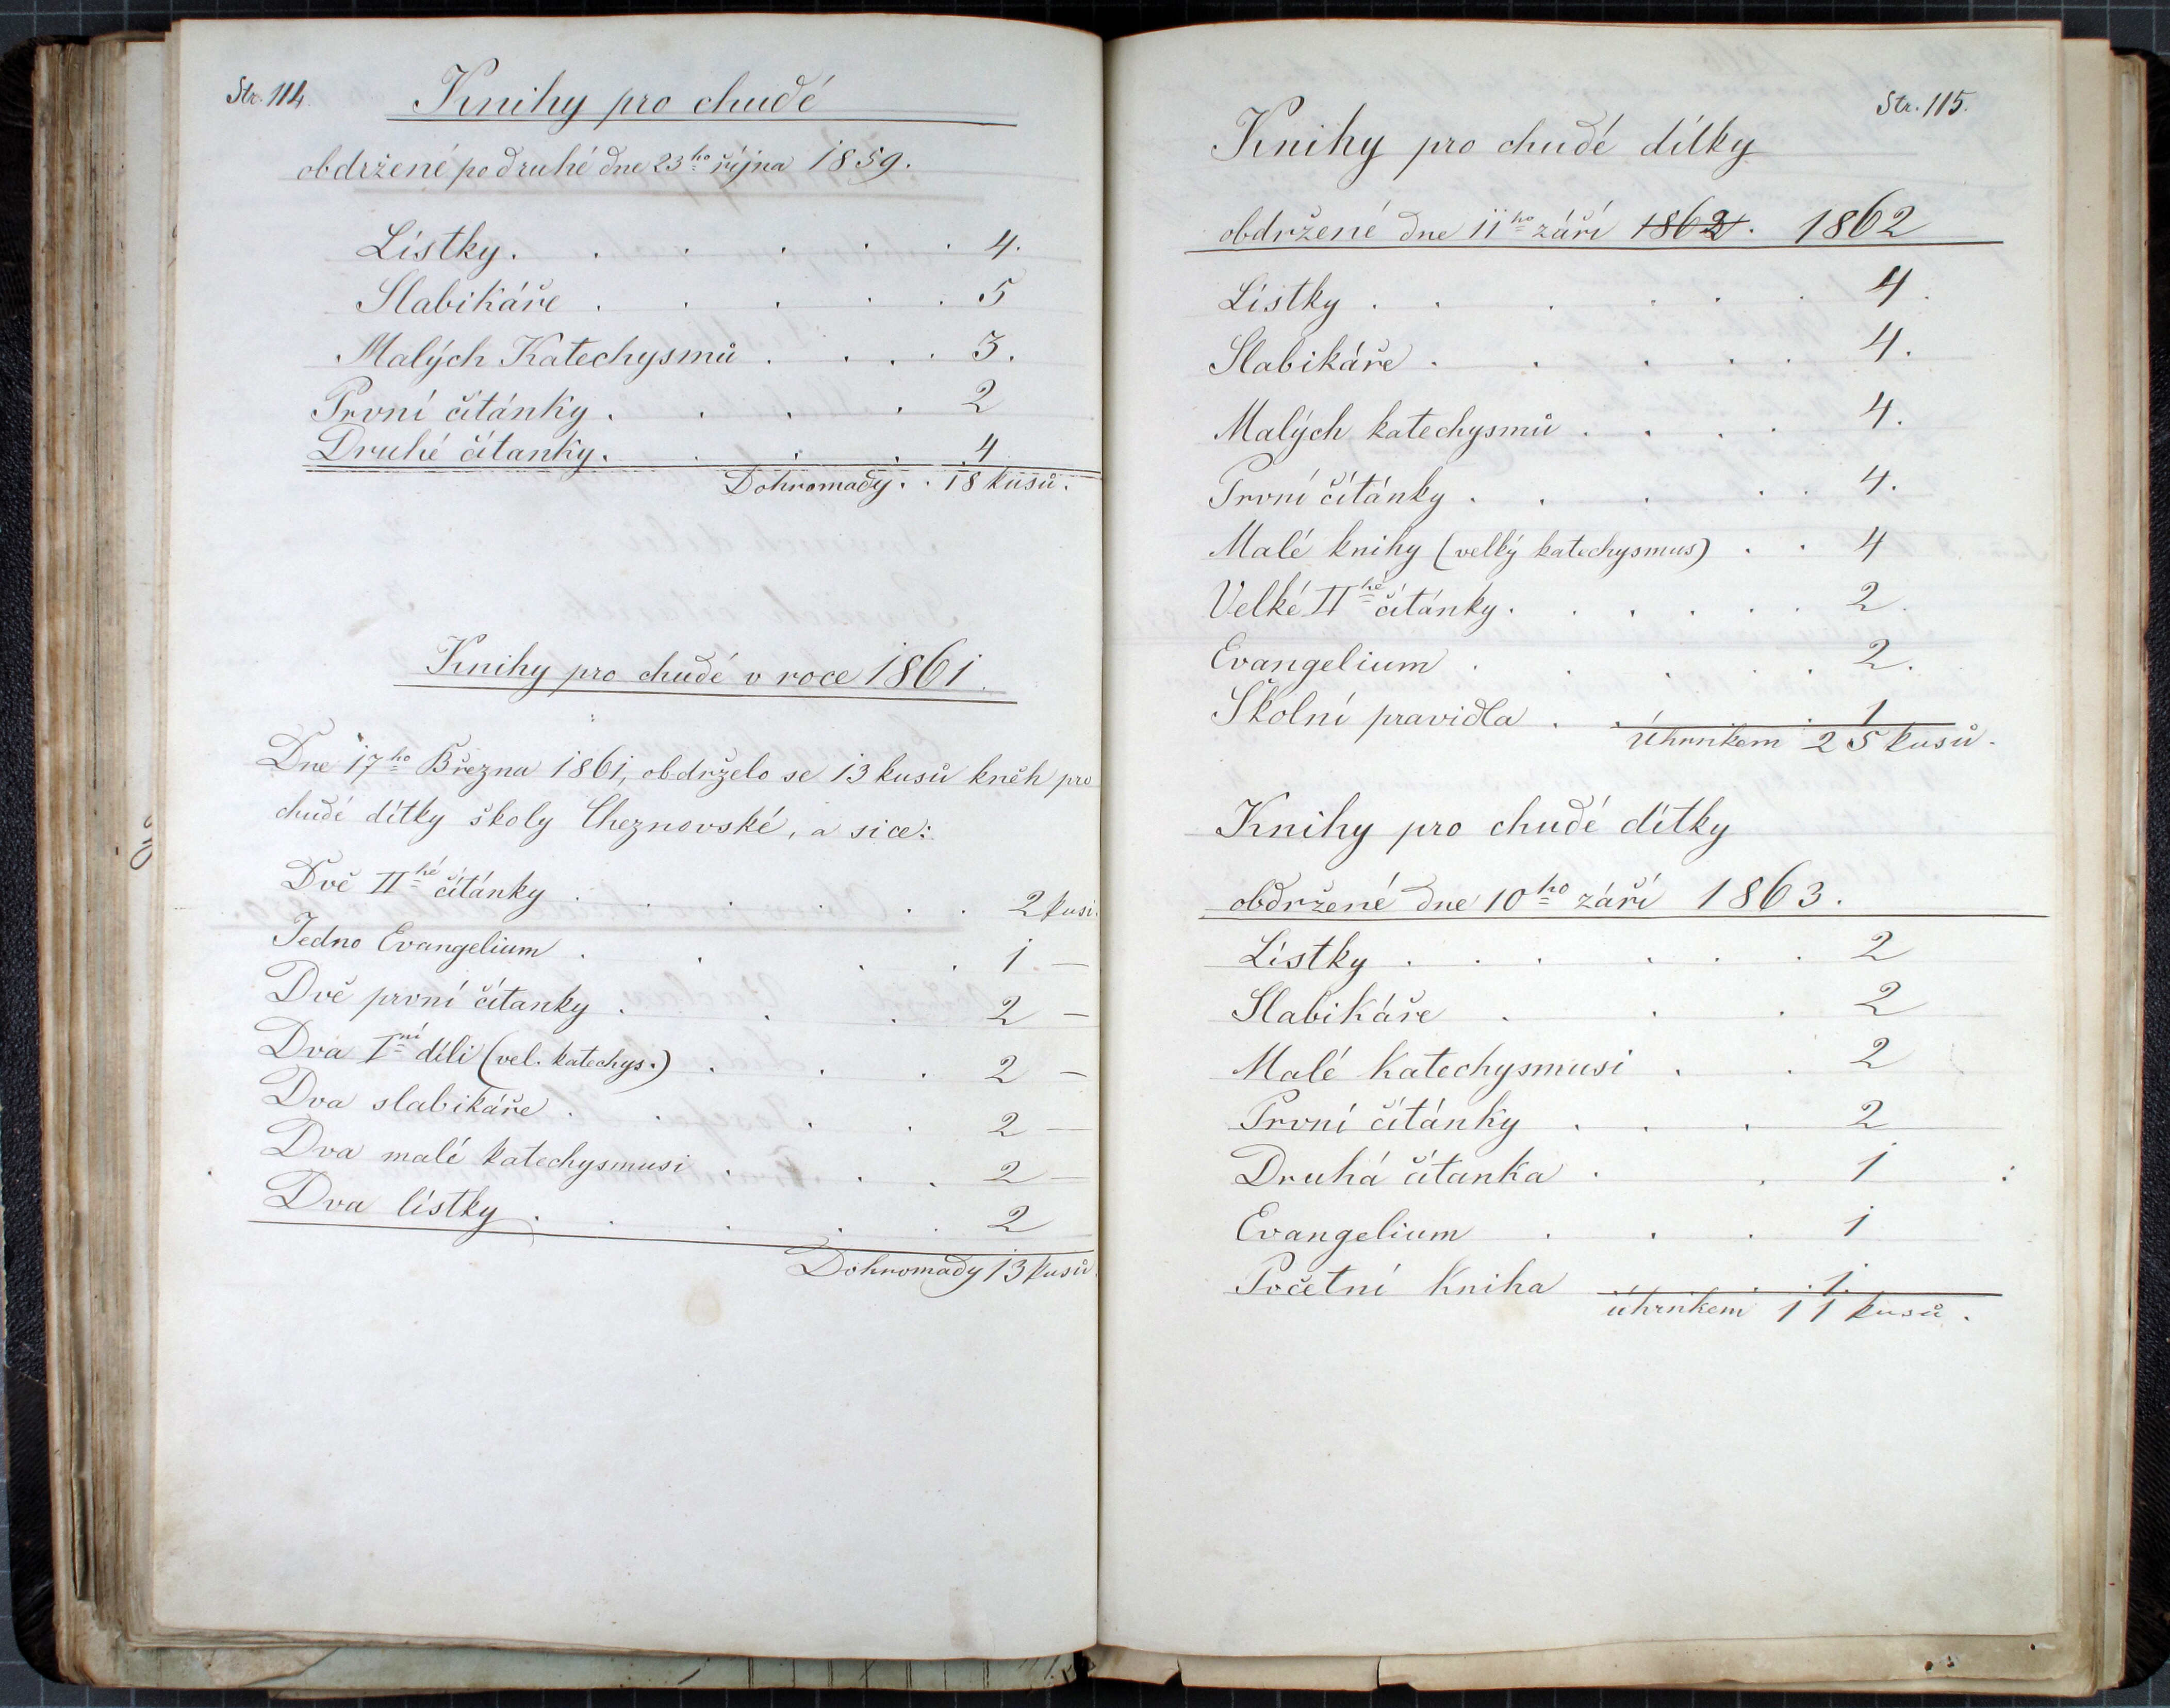 Str. 114.
Knihy pro chudé
obdržené po druhé dne 23ho října 1859.
Lístky. . . . . . 4.
Slabikáře . . . . . 5
Malých Katechysmů . . . . 3.
První čítánky . . . . 2
Druhé čítanky. . . . . 4
Dohromady. . 18 kusů.
Knihy pro chudé v roce 1861.
Dne 17ho Března 1861, obdrželo se 13 kusů kněh pro
chudé dítky školy Cheznovské, a sice:
Dvě IIhé čítánky . . . . . . 2 kusi.
Jedno Evangelium . . . . 1 —
Dvě první čítanky . . . 2 —
Dva Iní díli (vel. katechys.) . . . 2 —
Dva slabikáře . . . . 2 —
Dva malé katechysmusi . . . 2 —
Dva lístky . . . . . 2
Dohromady 13 kusů.
Str. 115.
Knihy pro chudé dítky
obdržené dne 11ho září 1862. 1862
Lístky . . . . . . 4.
Slabikáře . . . . . 4.
Malých katechysmů . . . . 4.
První čítánky . . . . . 4.
Malé knihy (velký katechysmus) . . 4
Velké IIhé čítánky . . . . . . 2.
Evangelium . . . . . 2.
Školní pravidla . . . 1
Úhrnkem 25 kusů.
Knihy pro chudé dítky
obdržené dne 10ho září 1863.
Lístky . . . . . . 2
Slabikáře . . . 2
Malé Katechysmusi . . 2
První čítánky . . . 2
Druhá čítanka . . 1
Evangelium . . . 1
Početní Kniha . . 1.
úhrnkem 11 kusů.